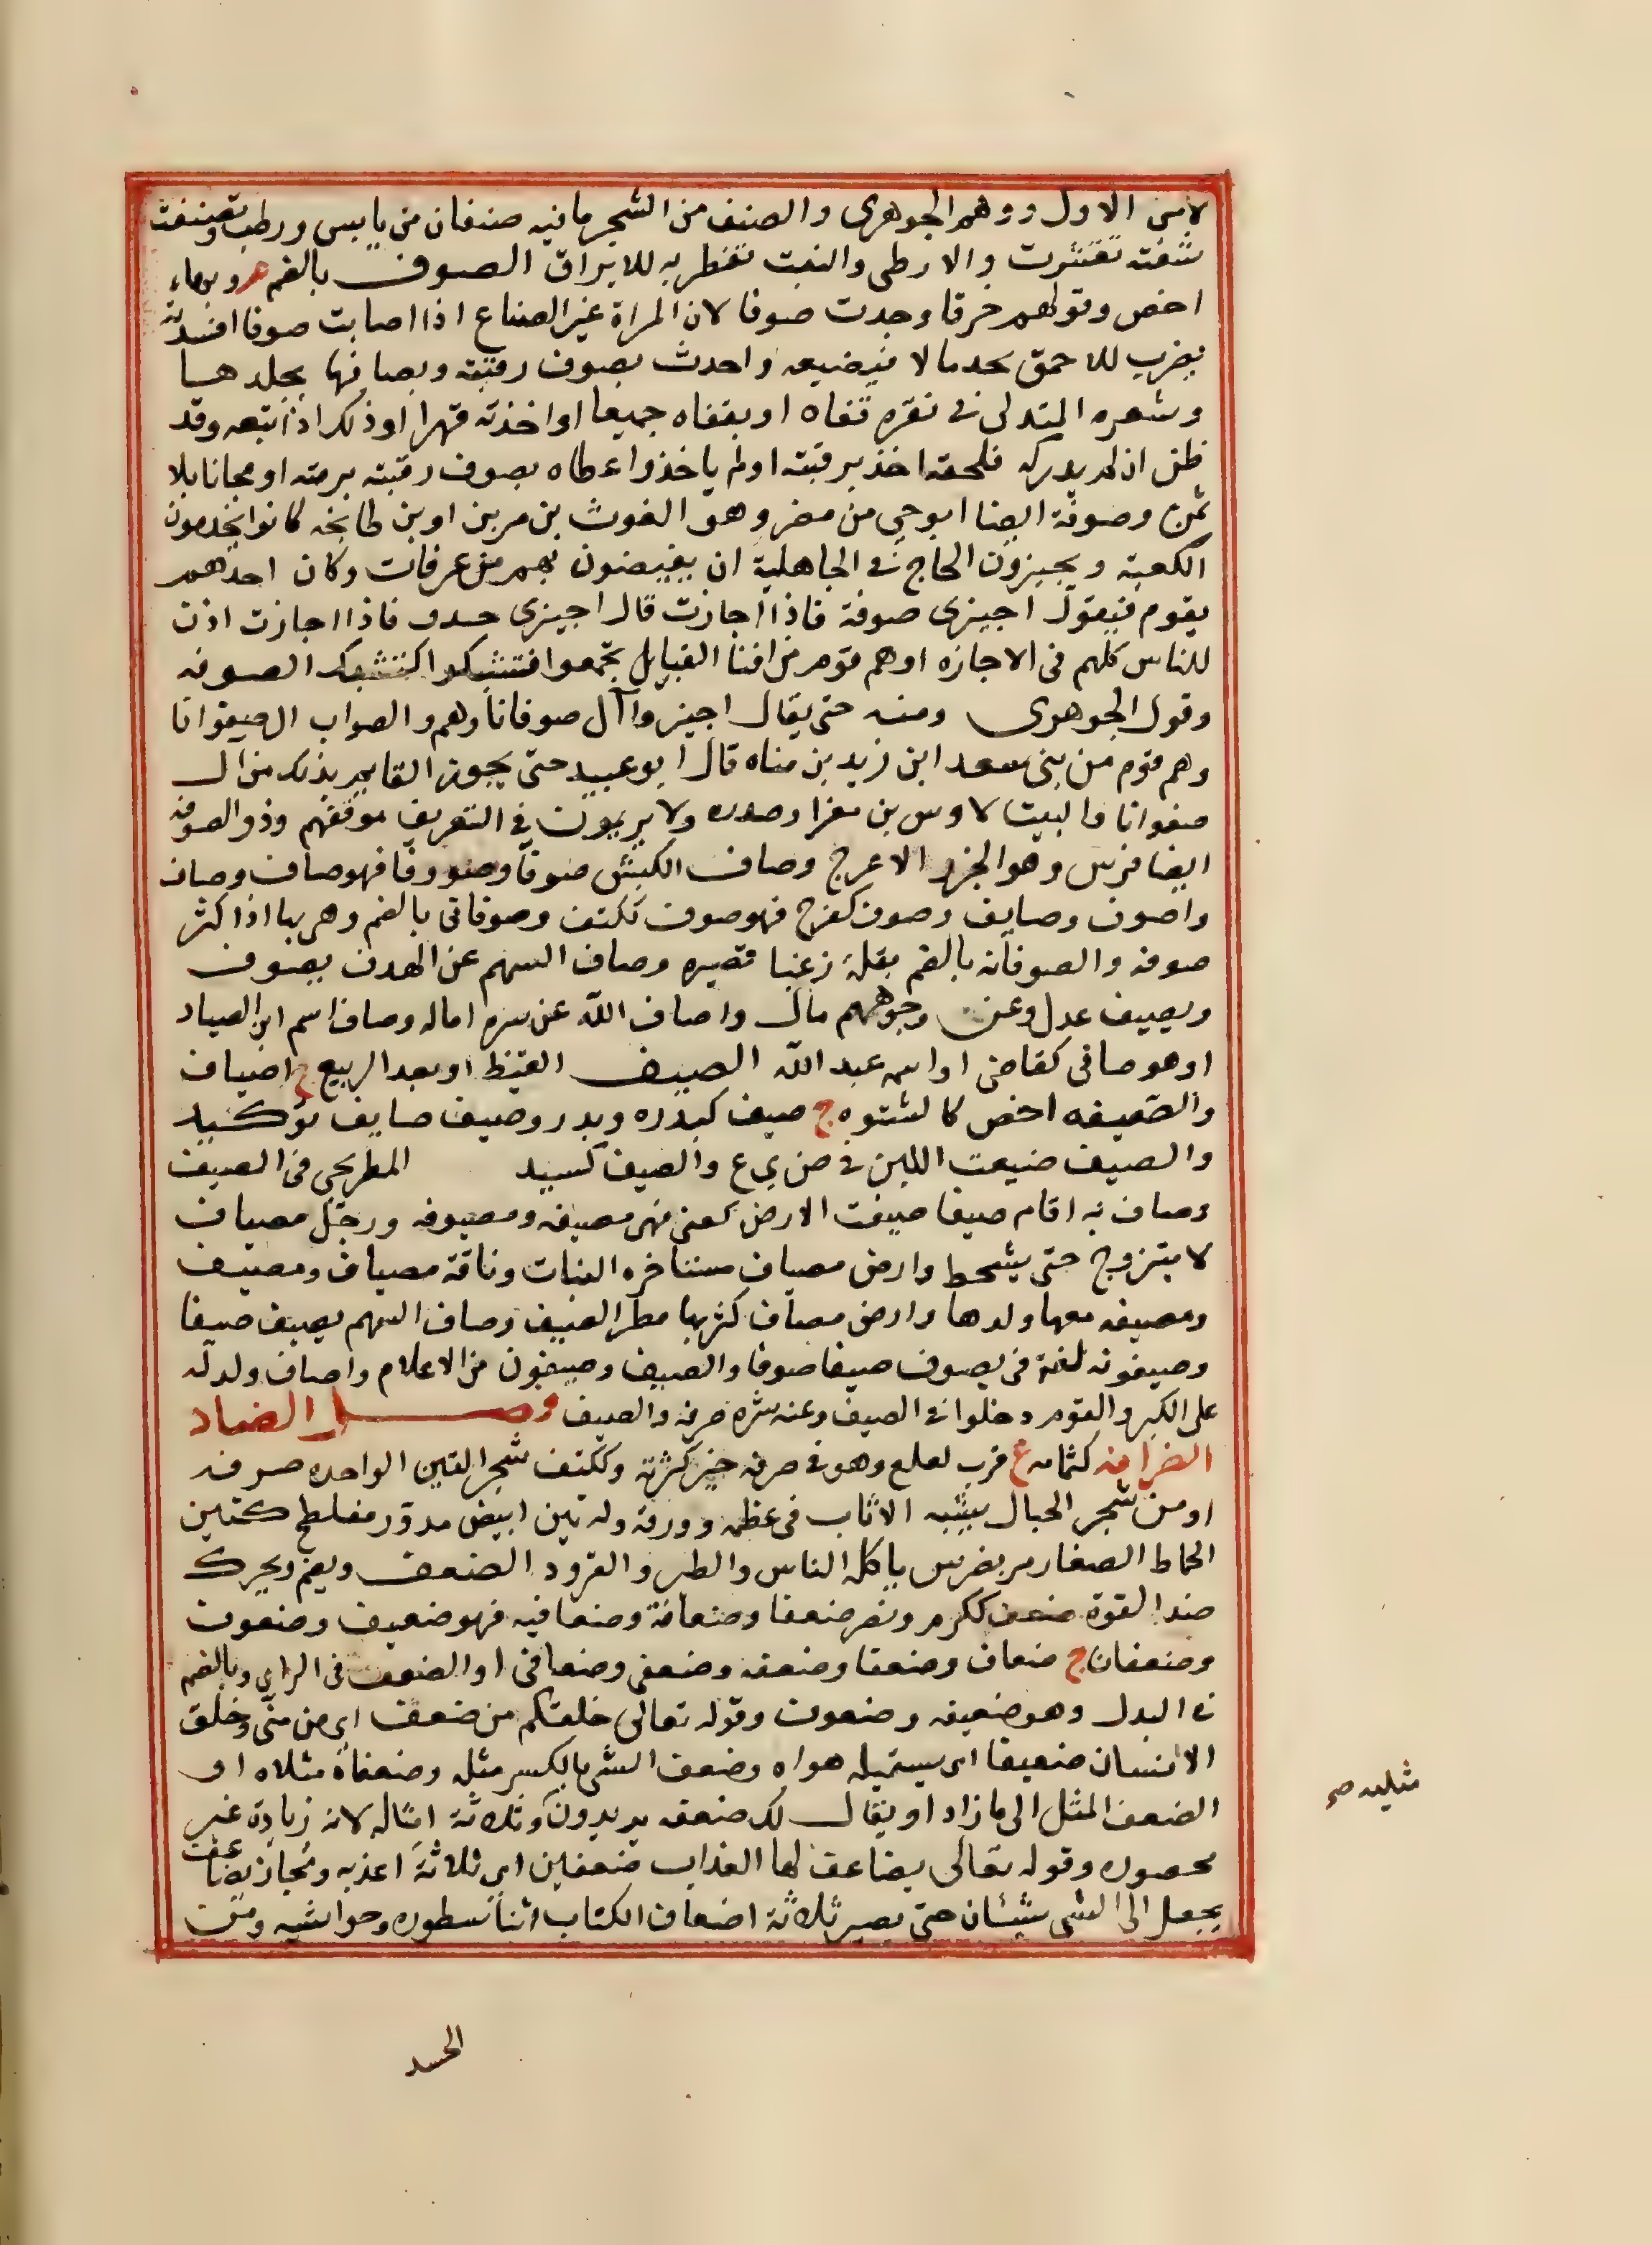 لابس الاول ووهم الجوهرى والصنف من الشجر ما فيه صنفان من يابس ورطب وتصنفت
شفته تقشرت والارطى والنبت تفطر به للايراق الصوف بالضم م وبهاء
اخص وقولهم خرقا وجدت صوفا لان المراة غير الصناع اذا اصابت صوفا افسدته
يضرب للاحمق يجد مالا فيضيعه واخذت بصوف رقبته وبصافها بجلدها
وشعره المتدلى فى نقره قفاه او بقفاه جميعا او اخذته قهرا او ذلك اذا اتبعه وقد
ظن ان لم يدركه فلحقه اخذ برقبته اولم ياخذ واعطاه بصوف رقبته برمته او مجانا بلا
ثمن وصوفة ايضا ابو حى من مضر وهو الغوث بن مر بن اد بن طابخه كانوا يخدمون
الكعبة ويجيزون الحاج فى الجاهلية اى يفيضون بهم من عرفات وكان احدهم
يقوم فيقول اجيزى صوفة فاذا اجازت قال اجيزى خندف فاذا اجازت اذن
للناس كلهم فى الاجازه او هم قوم من افنا القبايل تجمعوا فتشبكوا كتشبك الصوفه
وقول الجوهرى ومنه حتى يقال اجيزوا آل صوفانا وهم والصواب ال صفوانا
وهم قوم من بنى سعد ابن زيد بن مناه قال ابو عبيد حتى يجوز القايم بذلك من ال
صفوانا والبيت لاوس بن مغرا وصدره ولا يريمون فى التعريف موقفهم وذو الصوفه
ايضا فرس وهو ابو الخزز الاعرج وصاف الكبش صوفا وصووفا فهو صاف وصاف
واصوف وصايف وصوف كفرح فهو صوف ككتف وصوفانى بالضم وهى بها اذا كثر
صوفه والصوفانه بالضم بقلة زغبا قصيره وصاف السهم عن الهدف يصوف
ويصيف عدل وعنى وجوههم مال واصاف الله عنى شره اماله وصاف اسم ابن الصياد
او هو صافى كقاضى او اسمه عبد الله الصيف القيظ او بعد الربيع ج اصياف
والصيفه اخص كالشتوه ج صيف كبدره وبدر وصيف صايف توكيد
والصيف ضيعت اللبن فى ض ي ع والصيف كسيد المطر يجى فى الصيف
وصاف به اقام صيفا صيفت الارض كعنى فهى مصيفه ومصيوفه ورجل مصياف
لا يتزوج حتى يشمط وارض مصياف مستاخره النبات وناقة مصياف ومصيف
ومصيفه معها ولدها وارض مصياف كثر بها مطر الصيف وصاف السهم يصيف صيفا
وصيفوفه لغة فى يصوف صيفا صوفا والصيف وصيفون من الاعلام واصاف ولد له
على الكبر والقوم دخلوا فى الصيف وعنه شره صرفه والصيف فصل الضاد
الضرافه كثمامه ع قرب لعلع وهو فى ضرفه خير كثرته وككتف شجر التين الواحده ضرفه
او من شجر الجبال يشبه الاثاب فى عظمه وورقه وله تين ابيض مدور مفلطح كتين
الحماط الصغار مر يضرس ياكله الناس والطير والقرود الضعف ويضم ويحرك
ضد القوة ضعف ككرم ونصر ضعفا وضعافة وضعافيه فهو ضعيف وضعوف
وضعفان ج ضعاف وضعفا وضعفه وضعفى وضعافى او الضعف فى الراى وبالضم
فى البدن وهو ضعيفه وضعوف وقوله تعالى خلقكم من ضعف اى من منى وخلق
الانسان ضعيفا اى يستميله هواه وضعف الشى بالكسر مثله وضعفاه مثلاه او
الضعف المثل الى ما زاد او يقال لك ضعفه يريدون وثلاثة امثاله لانه زيادة غير
محصوره وقوله تعالى يضاعف لها العذاب ضعفين اى ثلاثة اعذبه ومجاز يضاعف
يجعل الى الشى شيئان حتى يصير ثلاثة اضعاف الكتاب اثنا سطوره وحواشيه ومن
مثليه صح
الجسد